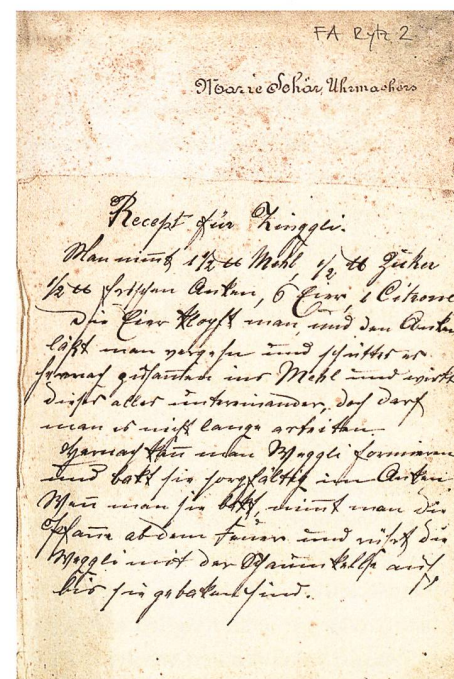 FA Rytz 2
Marie Schär, Uhrmachers
Recept für Ringgli.
Man nimmt 1 1/2 ℔ Mehl, 1/2 ℔ Zuker
1/2 ℔ frischen Anken, 6 Eier, 1 Citrone
Die Eier klopft man, und den Anken
läßt man vergehn und schüttet es
hernach zusamen ins Mehl und wirkt
dieses alles untereinander, doch darf
man es nicht lange arbeiten.
Hernach kan man Weggli formieren
und bakt sie sorgfältig im Anken
Wen man sie bakt, nimmt man die
Pfane ab dem Feuer und rührt die
Weggli mit der Schaumkelle auf
bis sie gebaken sind.